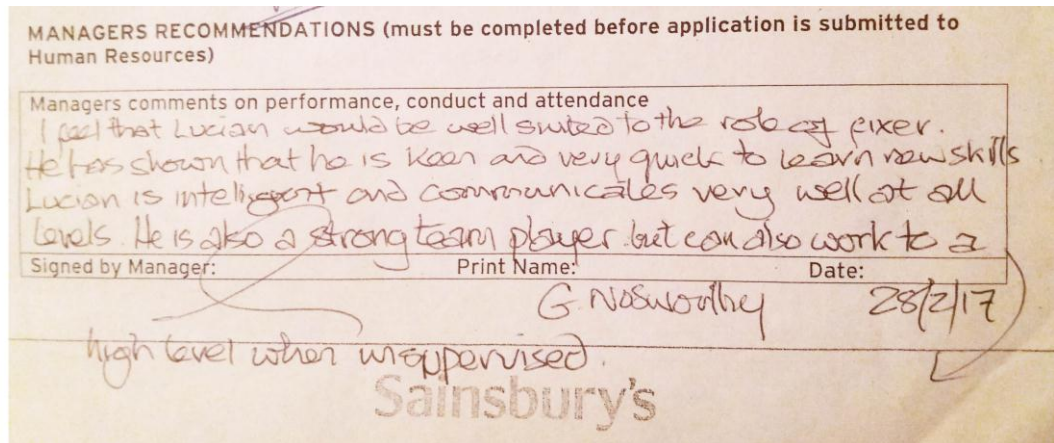 MANAGERS RECOMMENDATIONS (must be completed before application is submitted to
Human Resources)
Managers comments on performance, conduct and attendance
I feel that Lucian would be well suited to the role of fixer.
He has shown that he is keen and very quick to learn new skills
Lucian is intelligent and communicates very well at all
levels. He is also a strong team player but can also work to a
Signed by Manager: Print Name: Date:
G. Nosworthy 28/2/17
high level when unsupervised.
Sainsbury's